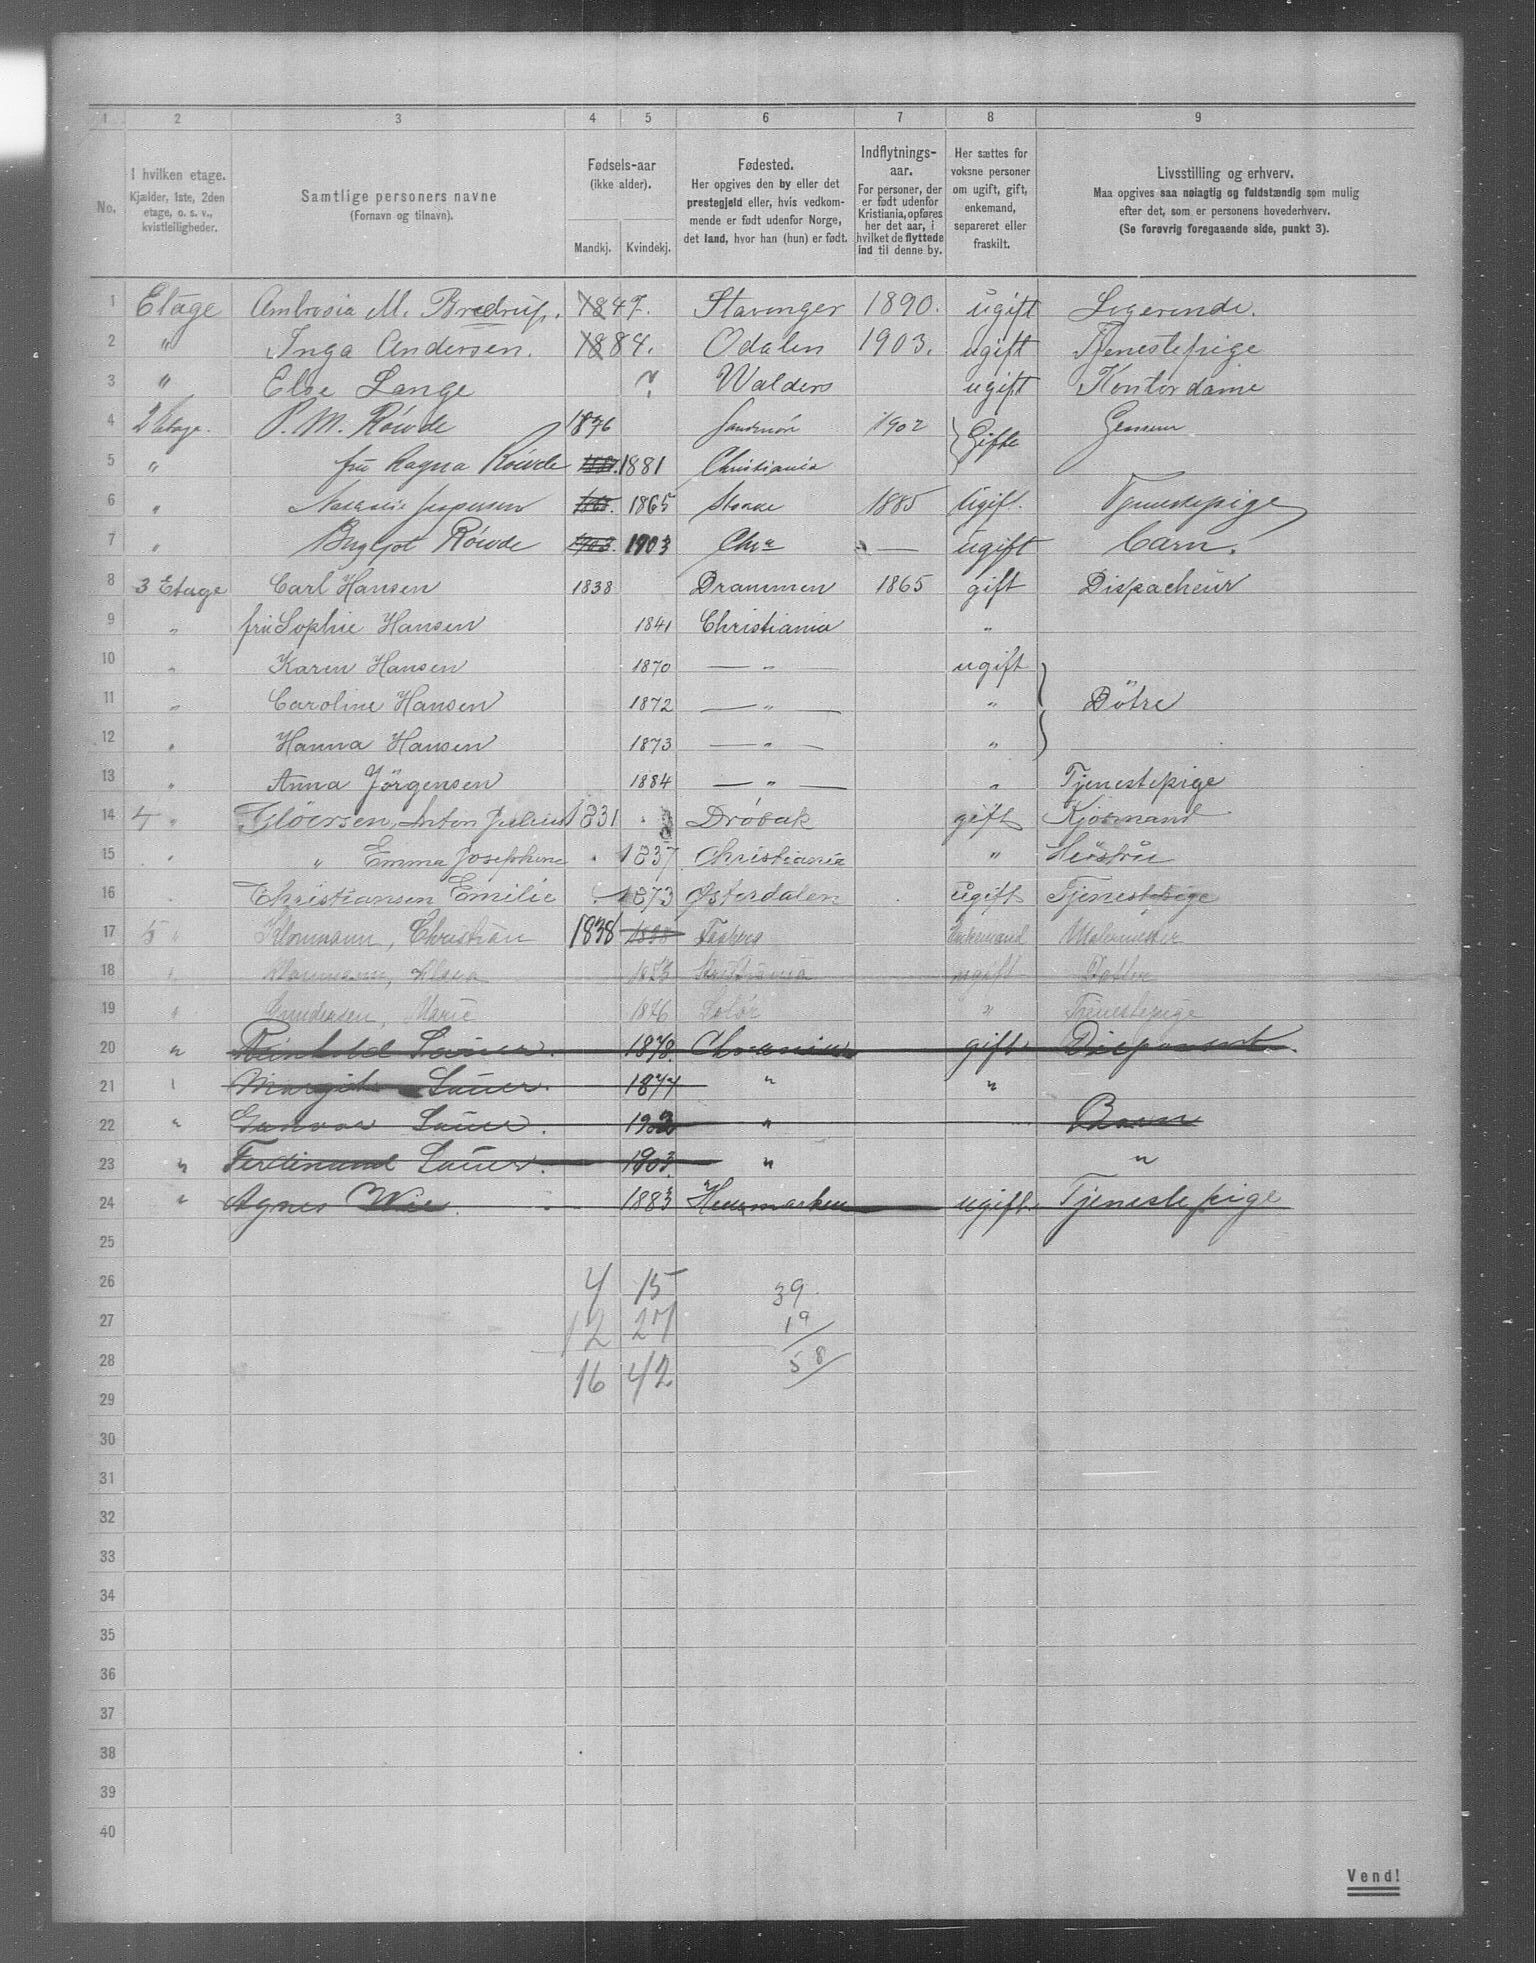 1 2 3 4 5 6 7 8 9
No.
I hvilken etage.
Kjælder, 1ste, 2den
etage, o. s. v.,
kvistleiligheder.
Samtlige personers navne
(Fornavn og tilnavn).
Fødsels-aar
(ikke alder).
Mandkj. Kvindekj.
Fødested.
Her opgives den by eller det
prestegjeld eller, hvis vedkom-
mende er født udenfor Norge,
det land, hvor han (hun) er født.
Indflytnings-
aar.
For personer, der
er født udenfor
Kristiania, opføres
her det aar, i
hvilket de flyttede
ind til denne by.
Her sættes for
voksne personer
om ugift, gift,
enkemand,
separeret eller
fraskilt.
Livsstilling og erhverv.
Maa opgives saa nøiagtig og fuldstændig som mulig
efter det, som er personens hovederhverv.
(Se forøvrig foregaaende side, punkt 3).
1 Etage Ambrosia M. Bredrup. 1847. Stavanger 1890. ugift Logerende.
2 " Inga Andersen. 1884. Odalen 1903. ugift Tjenestepige
3 " Else Lange ? Walders ugift Kontordame
4 2 Etage. P. M. Röwde 1876 Søndmör 1902 Gifte
5 " fru Ragna Röwde 1881 Christiania
6 " Jespersen 1865 1885 Ugift. Tjenestepige
7 " Röwde 1903 1903 Chra — ugift Barn.
8 3 Etage Carl Hansen 1838 Drammen 1865 gift Dispacheur
9 " fru Sophie Hansen 1841 Christiania "
10 " Karen Hansen 1870 — " — ugift
11 " Caroline Hansen 1872 — " — " Dötre
12 " Hanna Hansen 1873 — " — "
13 " Anna Jörgensen 1884 — " — " Tjenestepige
14 4 " Glöersen, Anton Julius 1831 Dröbak gift Kjöbmand
15 " " Emma Josephine 1837 Christiania " Hustru
16 Christiansen, Emilie 1873 Østerdalen ugift Tjenestepige
17 5 " Klonmann, Christian 1838 1838 Faaberg Enkemand Malermester
18 " Klonmann, Klara Kristiania ugift Datter
19 " Gundersen, Marie 1876 Solör " Tjenestepige
20 " Reinhold Sauer. 1878. Chrania gift Disponent.
21 " Margit Sauer. 1877 " "
22 " Gunvor Sauer. 1902 " Barn
23 " Ferdinand Sauer. 1903. " "
24 " Agnes Wie. 1883 Hedemarken ugift. Tjenestepige
25
26 4 15 39
27 12 27 19
28 16 42 58
29
30
31
32
33
34
35
36
37
38
39
40
Vend!